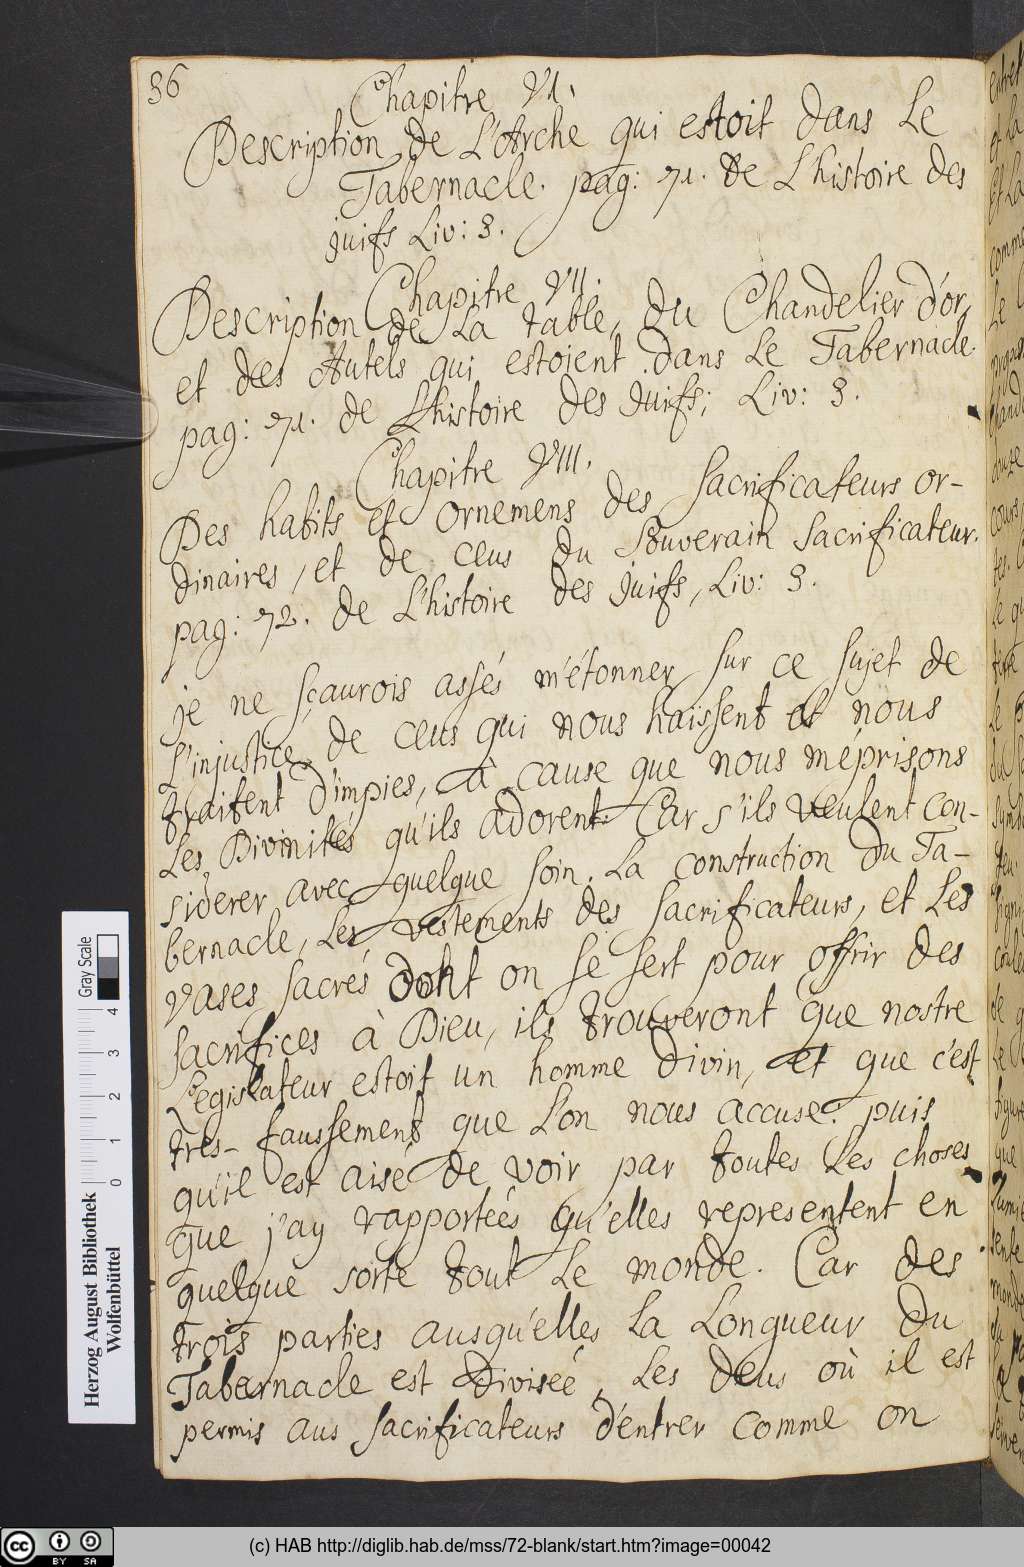 36
Chapitre VI.
Description de L'Arche qui estoit dans Le
Tabernacle. pag: 71. de L'histoire des
juifs Liv: 3.
Chapitre VII.
Description de La table, du Chandelier d'or,
et des Autels qui estoient dans Le Tabernacle.
pag: 71. de L'histoire des Juifs; Liv: 3.
Chapitre VIII.
Des habits et ornemens des sacrificateurs or-
dinaires, et de ceus du Souverain sacrificateur.
pag: 72. de L'histoire des juifs, Liv: 3.
je ne sçaurois assés m'étonner sur ce sujet de
L'injustice de ceus qui nous haissent et nous
traitent d'impies, à cause que nous méprisons
Les Divinités qu'ils adorent. Car s'ils veulent con-
siderer avec quelque soin. La construction du Ta-
bernacle, Les vestements des sacrificateurs, et Les
vases sacrés dont on se sert pour offrir des
sacrifices à Dieu, ils trouveront que nostre
Legislateur estoit un homme divin, et que c'est
tres-faussement que L'on nous accuse. puis
qu'il est aisé de voir par toutes Les choses
que j'ay rapporteés qu'elles representent en
quelque sorte tout Le monde. Car des
trois parties ausqu'elles La Longueur du
Tabernacle est diviseé, Les deus où il est
permis aus sacrificateurs d'entrer comme on
Herzog August Bibliothek
Wolfenbüttel
0 1 2 3 4
Gray Scale
(c) HAB http://diglib.hab.de/mss/72-blank/start.htm?image=00042
cc BY SA